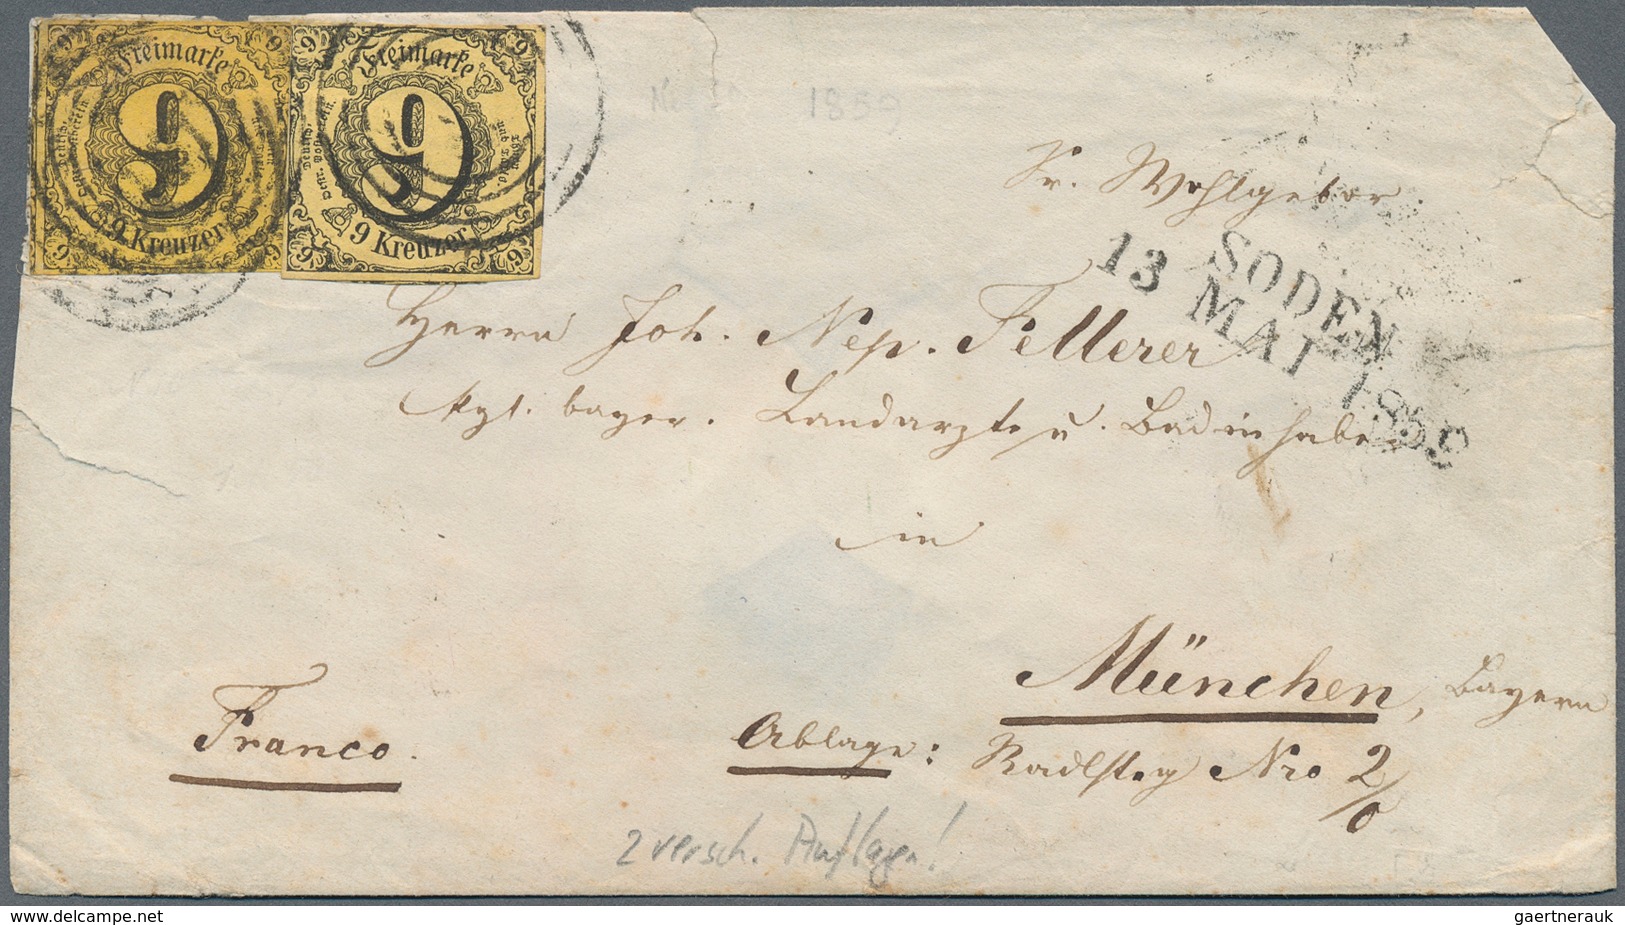 9 Freimarke 9
9
9 Kreuzer
9 9
9 Freimarke 9
Deutsch.
9
9 Kreuzer
9 9
1859
Sr. Wohlgebor
SODEN
13 MAI 1859
Herrn Joh. Nep. Fellerer
kgl. bayer. Landarzt u. Badinhaber
in
München, Bayern
Franco.
Ablage: Radlsteg Nro 2/0
2 versch. Auflagen!
delcampe.net
gaertnerauk